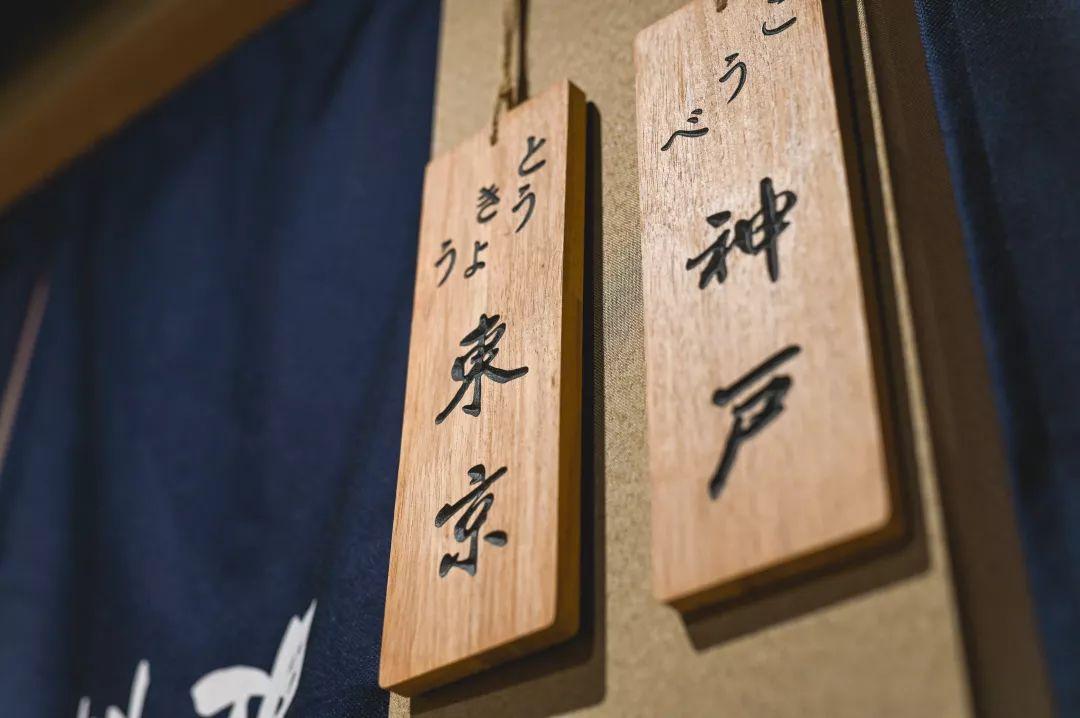 とう
きょ
う
東京
こ
う
べ
神戸